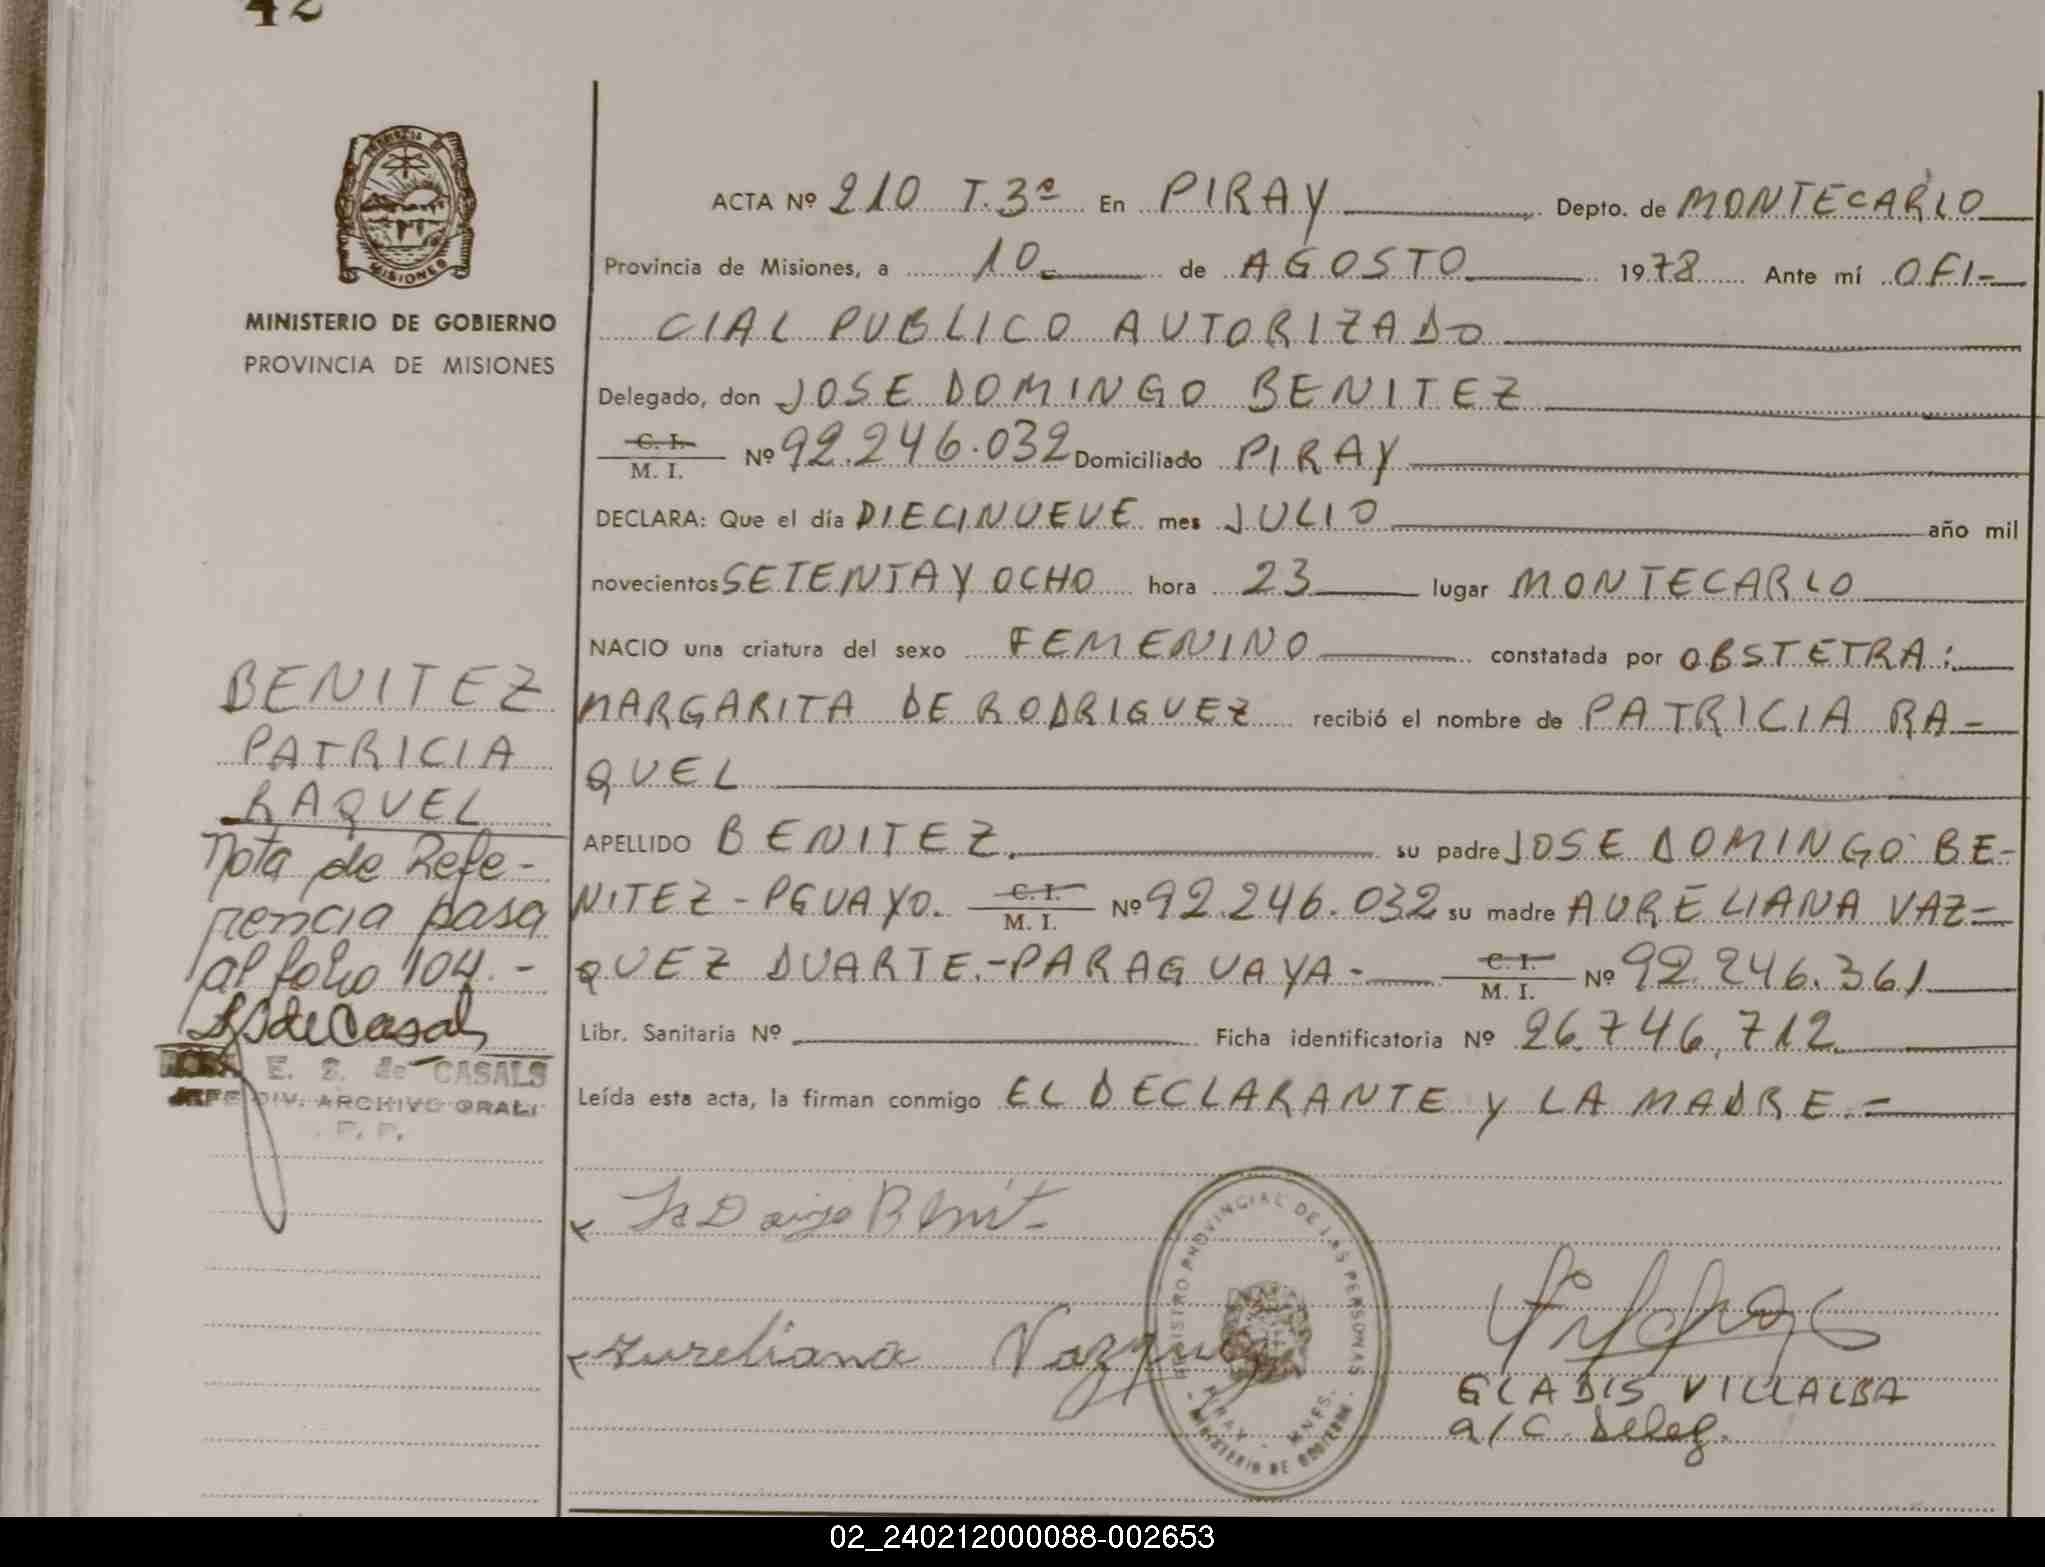 42
PROVINCIA DE
MISIONES
MINISTERIO DE GOBIERNO
PROVINCIA DE MISIONES
ACTA Nº 210 T. 3º En PIRAY Depto. de MONTECARLO
Provincia de Misiones, a 10 de AGOSTO 1978 Ante mí OFI-
CIAL PUBLICO AUTORIZADO
Delegado, don JOSE DOMINGO BENITEZ
C. I.
M. I. Nº 92.246.032 Domiciliado PIRAY
DECLARA: Que el día DIECINUEVE mes JULIO año mil
novecientos SETENTA Y OCHO hora 23 lugar MONTECARLO
NACIO una criatura del sexo FEMENINO constatada por OBSTETRA:
MARGARITA DE RODRIGUEZ recibió el nombre de PATRICIA RA-
QUEL
APELLIDO BENITEZ. su padre JOSE DOMINGO BE-
NITEZ - PGUAYO. C. I.
M. I. Nº 92.246.032 su madre AURELIANA VAZ-
QUEZ DUARTE.-PARAGUAYA- C. I.
M. I. Nº 92.246.361
Libr. Sanitaria Nº Ficha identificatoria Nº 26.746.712
Leída esta acta, la firman conmigo EL DECLARANTE Y LA MADRE.-
BENITEZ
PATRICIA
RAQUEL
Nota de Refe-
rencia pasa
al folio 104.-
SdeCasals
E. S. de CASALS
JEFE DIV. ARCHIVO GRAL.
Aureliana Vazquez
REGISTRO PROVINCIAL DE LAS PERSONAS
PIRAY - MNES.
MINISTERIO DE GOBIERNO
GLADIS VILLALBA
a/C. Deleg.
02_240212000088-002653